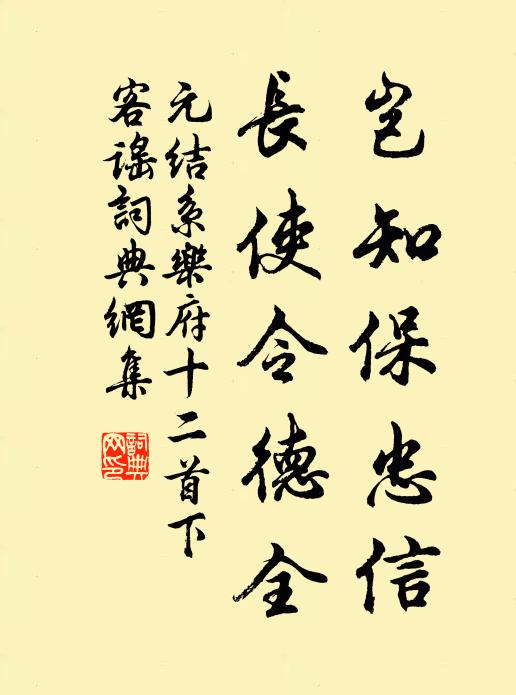 豈知保忠信
長使令德全
元結系樂府十二首下
客謠詞典網集
詞典網印